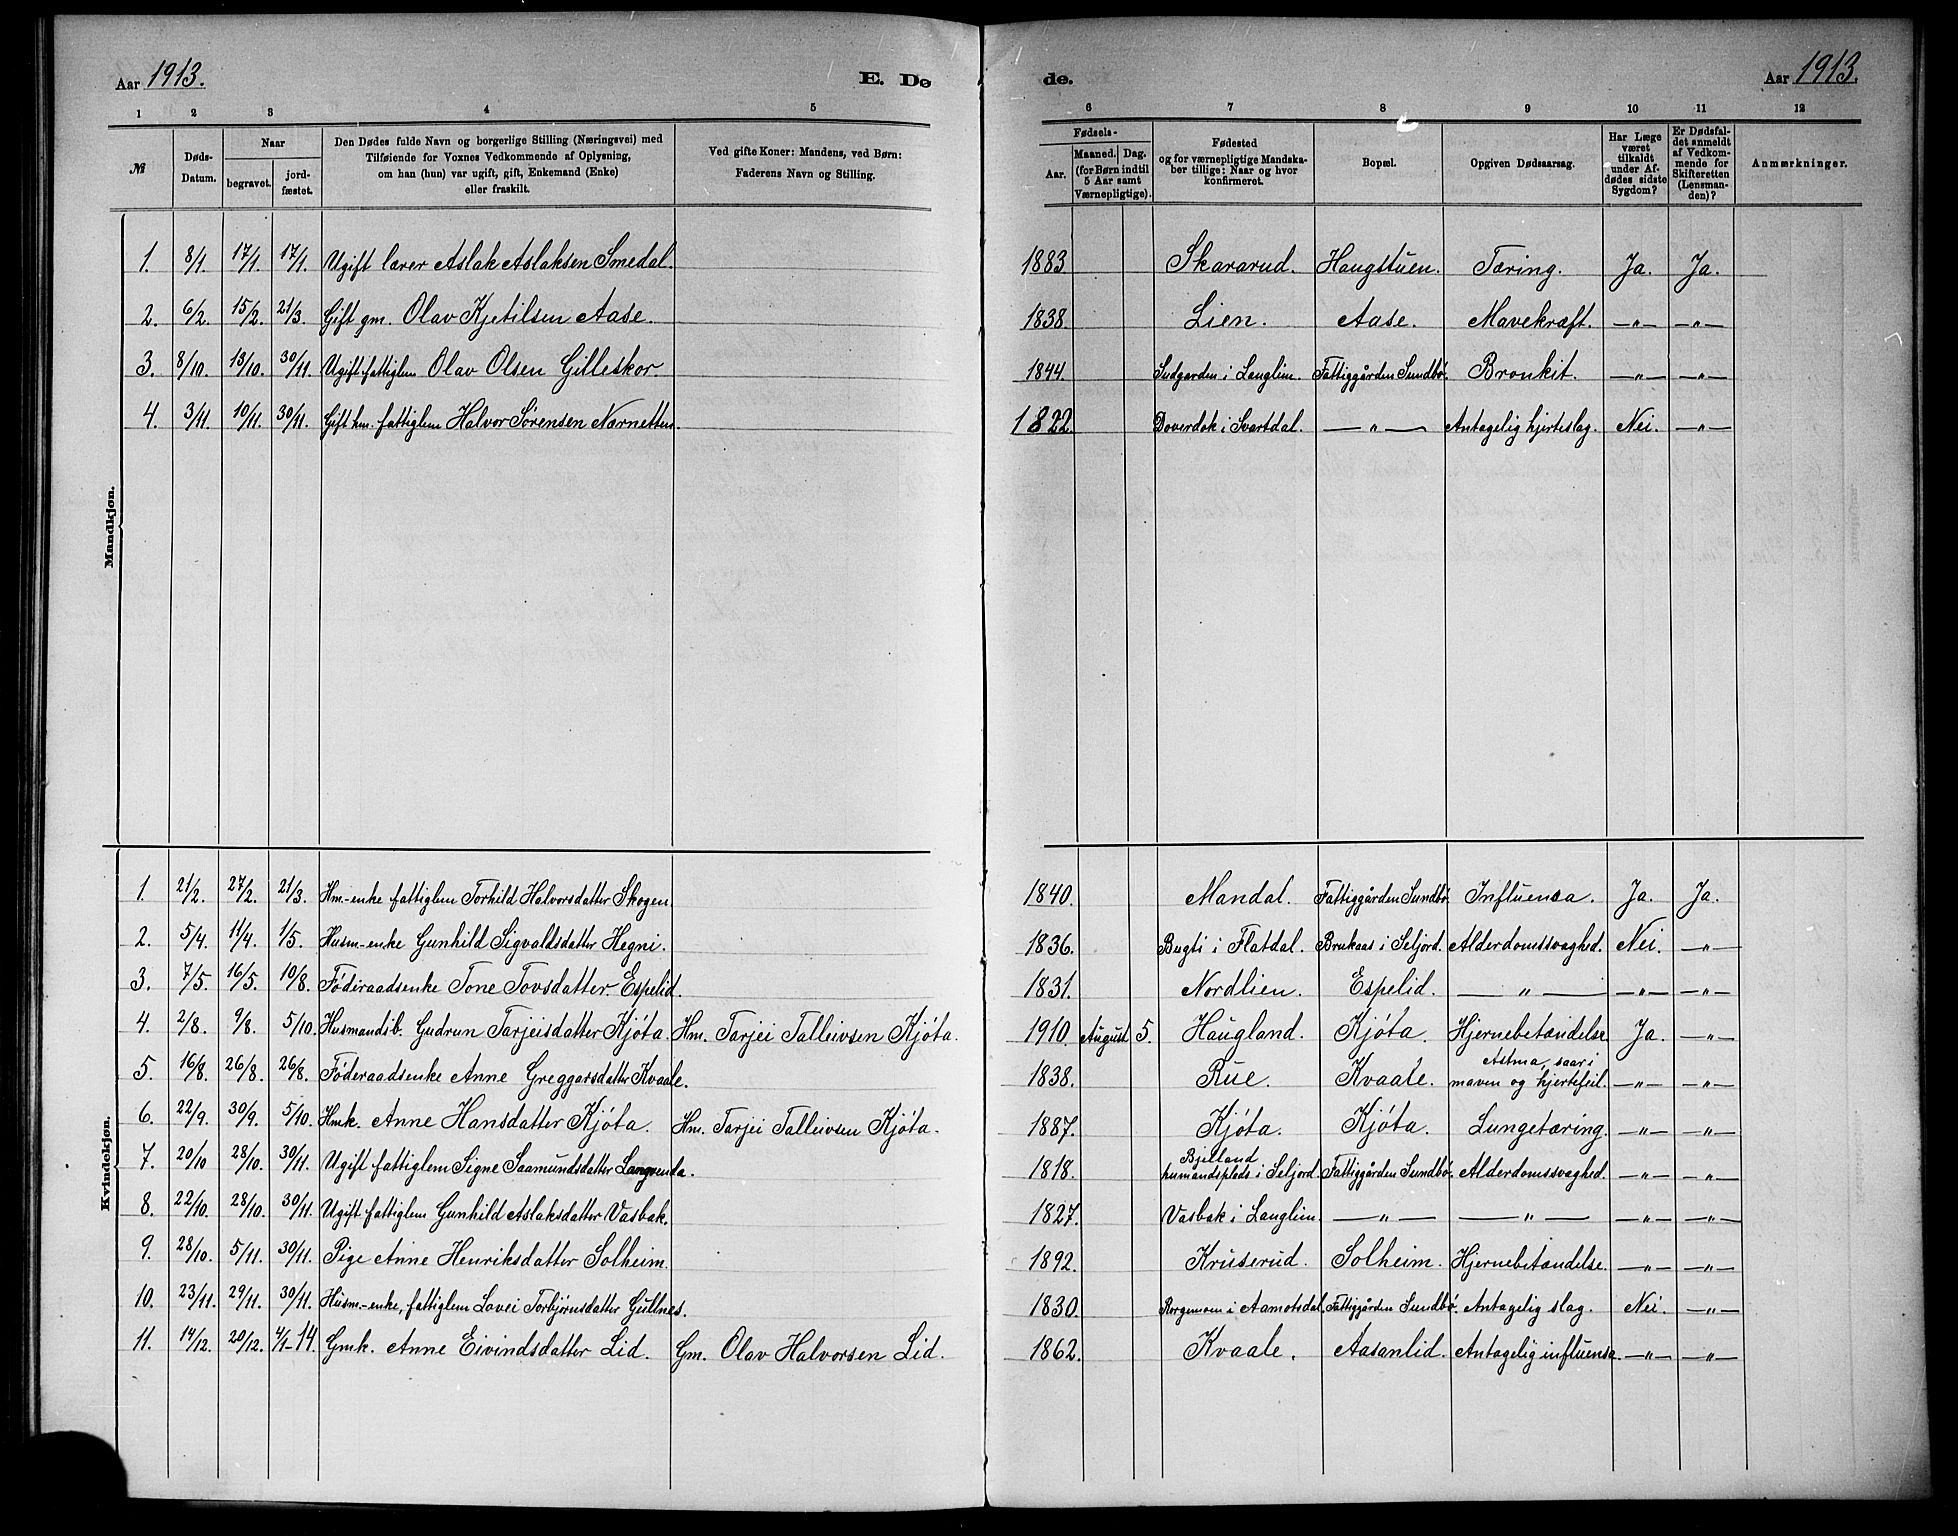 Aar 1913. E. Dø de. Aar 1913.
1 2 3 4 5 6 7 8 9 10 11 12
№ Døds-Datum. Naar begravet. jord-fæstet. Den Dødes fulde Navn og borgerlige Stilling (Næringsvei) med Tilføiende for Voxnes Vedkommende af Oplysning, om han (hun) var ugift, gift, Enkemand (Enke) eller fraskilt. Ved gifte Koner: Mandens, ved Børn: Faderens Navn og Stilling. Fødsels- Aar. Maaned. Dag. (for Børn indtil 5 Aar samt Værnepligtige). Fødested og for værnepligtige Mandska-ber tillige: Naar og hvor konfirmeret. Bopæl. Opgiven Dødsaarsag. Har Læge været tilkaldt under Af-dødes sidste Sygdom? Er Dødsfal-det anmeldt af Vedkom-mende for Skifteretten (Lensman-den)? Anmærkninger.
Mandkjøn.
1. 8/1. 17/1. 17/1. Ugift lærer Aslak Aslaksen Smedal. 1883 Skararud. Haugstuen. Tæring. Ja. Ja.
2. 6/2. 15/2. 21/3. Gift gm. Olav Kjetilsen Aase. 1838. Lien. Aase. Mavekræft. —"— —"—
3. 8/10. 13/10. 30/11. Ugift fattiglem Olav Olsen Gilleskor 1844. Sudgarden i Langlim. Fattiggården Sundbø. Bronkit. —"— —"—
4. 3/11. 10/11. 30/11. Gift hm. fattiglem Halvor Sørensen Nærnetten. 1822. Doverdok i Svartdal. —"— Antagelig hjerteslag. Nei. —"—
Kvindekjøn.
1. 21/2. 27/2. 21/3. Hm.-enke fattiglem Torhild Halvorsdatter Skogen 1840. Mandal. Fattiggården Sundbø Influensa. Ja. Ja.
2. 5/4. 11/4. 1/5. Husm-enke Gunhild Sigvaldsdatter Hegni. 1836. Bugti i Flatdal. Brukaas i Seljord. Alderdomssvaghed. Nei. —"—
3. 7/5. 16/5. 10/8. Føderaadsenke Tone Tovsdatter Espelid. 1831. Nordlien. Espelid. —"— —"— —"—
4. 2/8. 9/8. 5/10. Husmandsb. Gudrun Tarjeisdatter Kjøta. Hm. Tarjei Talleivsen Kjøta. 1910. August 5. Haugland. Kjøta. Hjernebetændelse Ja. —"—
5. 16/8. 26/8. 26/8. Føderaadsenke Anne Greggarsdatter Kvaale. 1838. Rue. Kvaale. Astma, saar i maven og hjertefeil. —"— —"—
6. 22/9. 30/9. 5/10. Hmk. Anne Hansdatter Kjøta. Hm. Tarjei Talleivsen Kjøta. 1887. Kjøta. Kjøta. Lungetæring. —"— —"—
7. 20/10 28/10. 30/11. Ugift fattiglem Signe Saamundsdatter Langvenda. 1818. Bjelland humandsplads i Seljord. Fattiggården Sundbø. Alderdomssvaghed. —"— —"—
8. 22/10. 28/10. 30/11. Ugift fattiglem Gunhild Aslaksdatter Vasbak. 1827. Vasbak i Langlim. —"— —"— —"— —"—
9. 28/10. 5/11. 30/11. Pige Anne Henriksdatter Solheim. 1892. Kruserud. Solheim. Hjernebetændelse. —"— —"—
10. 23/11. 29/11. 30/11. Husm-enke, fattiglem Lavei Torbjørnsdatter Gullnes. 1830. i Aamotsdal. Fattiggården Sundbø. Antagelig slag. Nei. —"—
11. 14/12. 20/12. 4/1-14. Gmk. Anne Eivindsdatter Lid. Gm. Olav Halvorsen Lid. 1862. Kvaale. Aasanlid. Antagelig influensa. —"— —"—